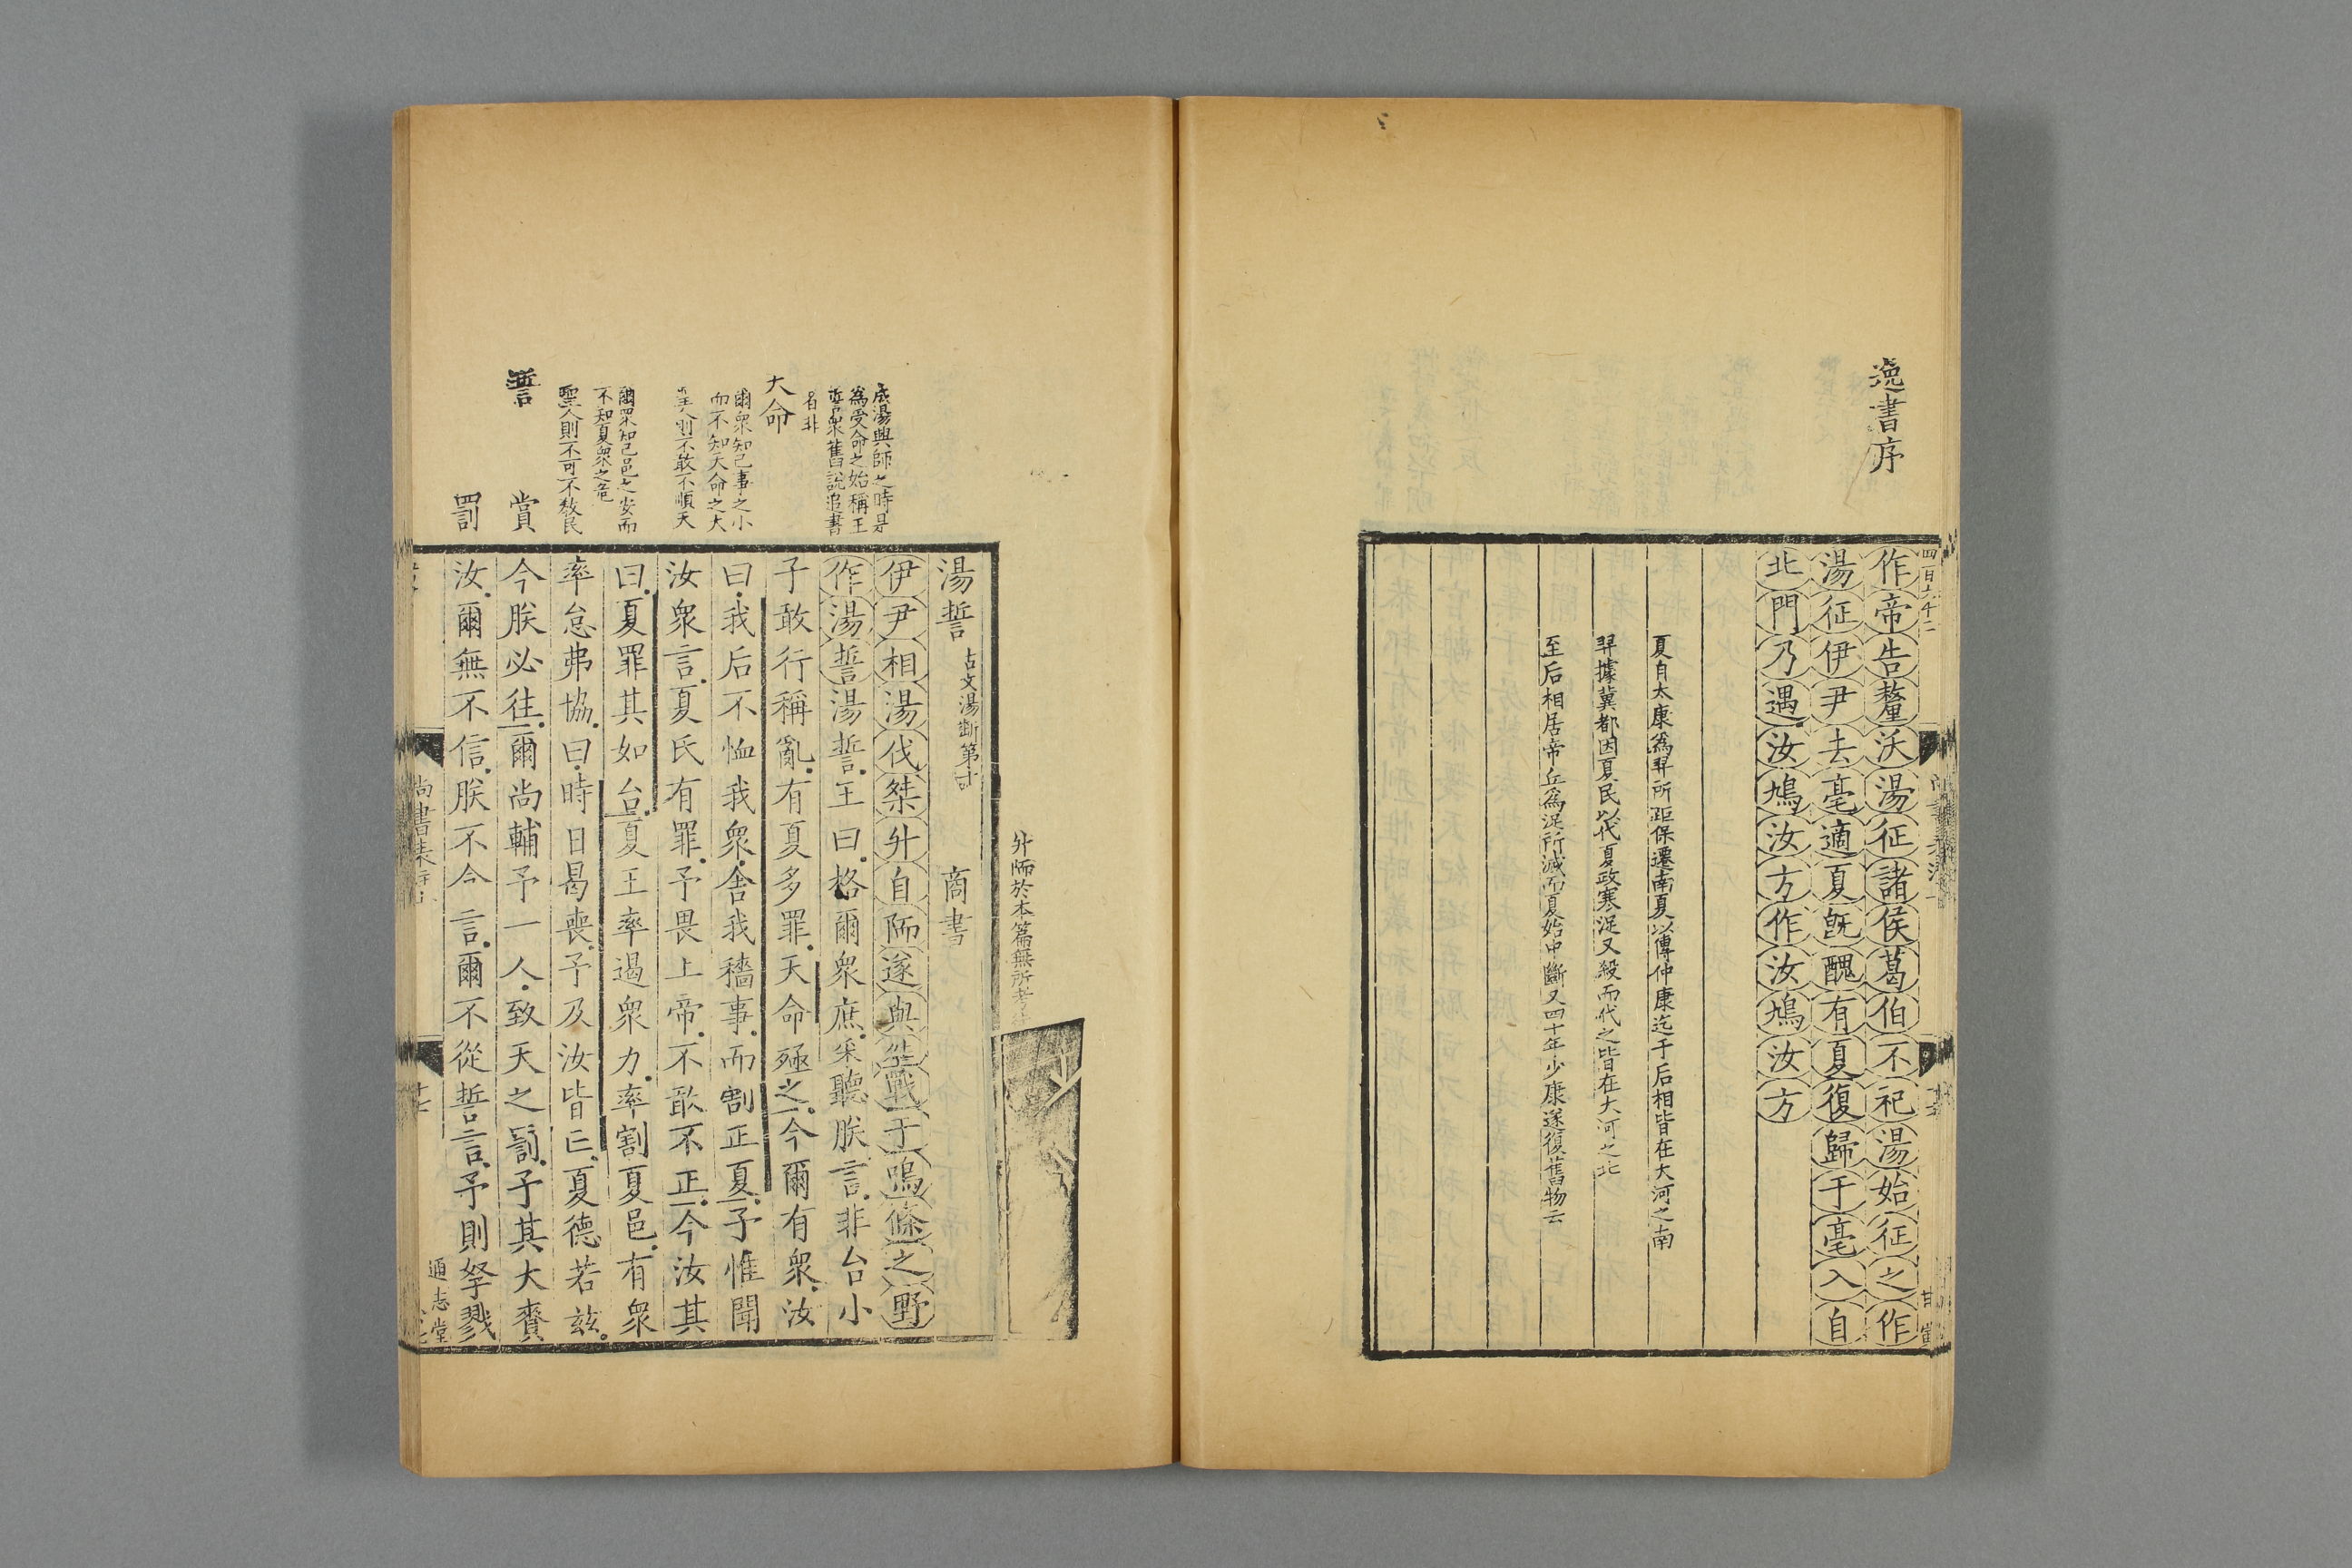 逸書序
作帝告釐沃湯征諸侯葛伯不祀湯始征之作
湯征伊尹去亳適夏旣醜有夏復歸于亳入自
北門乃遇汝鳩汝方作汝鳩汝方
夏自太康爲羿所距保遷南夏以傳仲康迄于后相皆在大河之南
羿據冀都因夏民以代夏政寒浞又殺而代之皆在大河之北
至后相居帝丘爲浞所滅而夏始中斷又四十年少康遂復舊物云
升陑於本篇無所考
湯誓 古文湯斷第十 商書
伊尹相湯伐桀升自陑遂與桀戰于鳴條之野
作湯誓湯誓王曰格爾衆庶悉聽朕言非台小
子敢行稱亂有夏多罪天命殛之今爾有衆汝
曰我后不恤我衆舍我穡事而割正夏予惟聞
汝衆言夏氏有罪予畏上帝不敢不正今汝其
曰夏罪其如台夏王率遏衆力率割夏邑有衆
率怠弗協曰時日曷喪予及汝皆亡夏德若茲
今朕必往爾尚輔予一人致天之罰予其大賚
汝爾無不信朕不食言爾不從誓言予則孥戮
成湯興師之時是
爲受命之始稱王
誓衆舊說追書
者非
大命
爾衆知己事之小
而不知天命之大
聖人則不敢不順天
爾衆知己邑之安而
不知夏衆之危
聖人則不可不救民
誓
賞
罰
尚書表注
通志堂